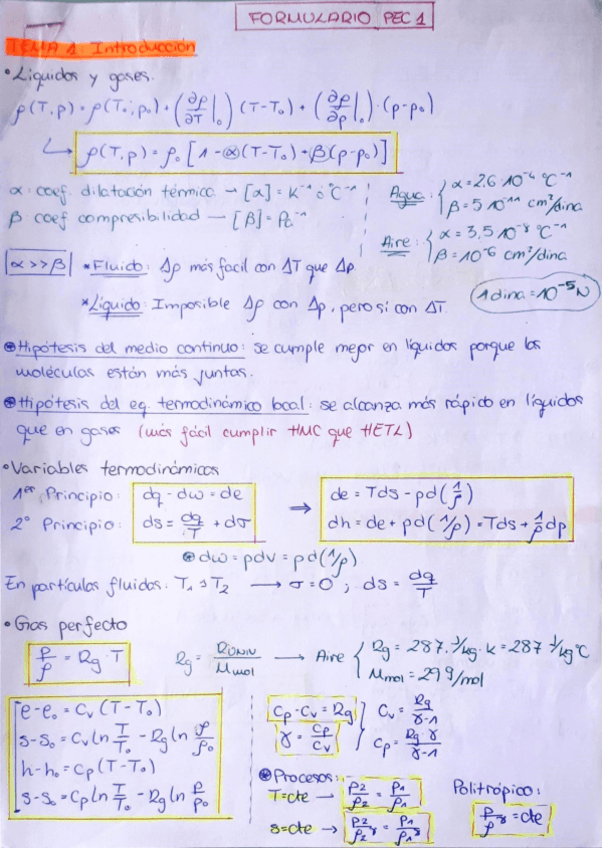 FORMULARIO PEC 1
TEMA 1: Introducción
• Líquidos y gases.
ρ(T,p) = ρ(T₀,p₀) + (∂ρ/∂T|₀)(T-T₀) + (∂ρ/∂p|₀)·(p-p₀)
↳ ρ(T,p) = ρ₀[1-α(T-T₀)+β(p-p₀)]
α: coef. dilatación térmica → [α] = K⁻¹ ó °C⁻¹
β: coef compresibilidad → [β] = Pa⁻¹
Agua: { α = 2.6·10⁻⁴ °C⁻¹
β = 5·10⁻¹¹ cm²/dina
Aire: { α = 3,5·10⁻³ °C⁻¹
β = 10⁻⁶ cm²/dina
1 dina = 10⁻⁵ N
α >> β * Fluido: Δρ más facil con ΔT que Δp.
* Líquido: Imposible Δρ con Δp, pero sí con ΔT.
⊛ Hipótesis del medio continuo: se cumple mejor en líquidos porque las
moléculas están más juntas.
⊛ Hipótesis del eq. termodinámico local: se alcanza más rápido en líquidos
que en gases (más fácil cumplir HMC que HETL)
• Variables termodinámicas
1er Principio: dq - dw = de
2º Principio: ds = dq/T + dσ
⇒ de = Tds - pd(1/ρ)
dh = de + pd(1/ρ) = Tds + 1/ρ dp
⊛ dw = pdv = pd(1/ρ)
En partículas fluidas: T₁ ≃ T₂ → σ = 0 ; ds = dq/T
• Gas perfecto
p/ρ = Rg·T
Rg = RUNIV/Mmol → Aire { Rg = 287 J/kg·K = 287 J/kg°C
Mmol = 29 g/mol
e-e₀ = Cv(T-T₀)
s-s₀ = Cv ln T/T₀ - Rg ln ρ/ρ₀
h-h₀ = Cp(T-T₀)
s-s₀ = Cp ln T/T₀ - Rg ln p/p₀
Cp - Cv = Rg
γ = Cp/Cv
Cv = Rg/γ-1
Cp = Rg γ/γ-1
⊛ Procesos:
T = cte → p₂/ρ₂ = p₁/ρ₁
s = cte → p₂/ρ₂^γ = p₁/ρ₁^γ
Politrópico:
p/ρ^γ = cte